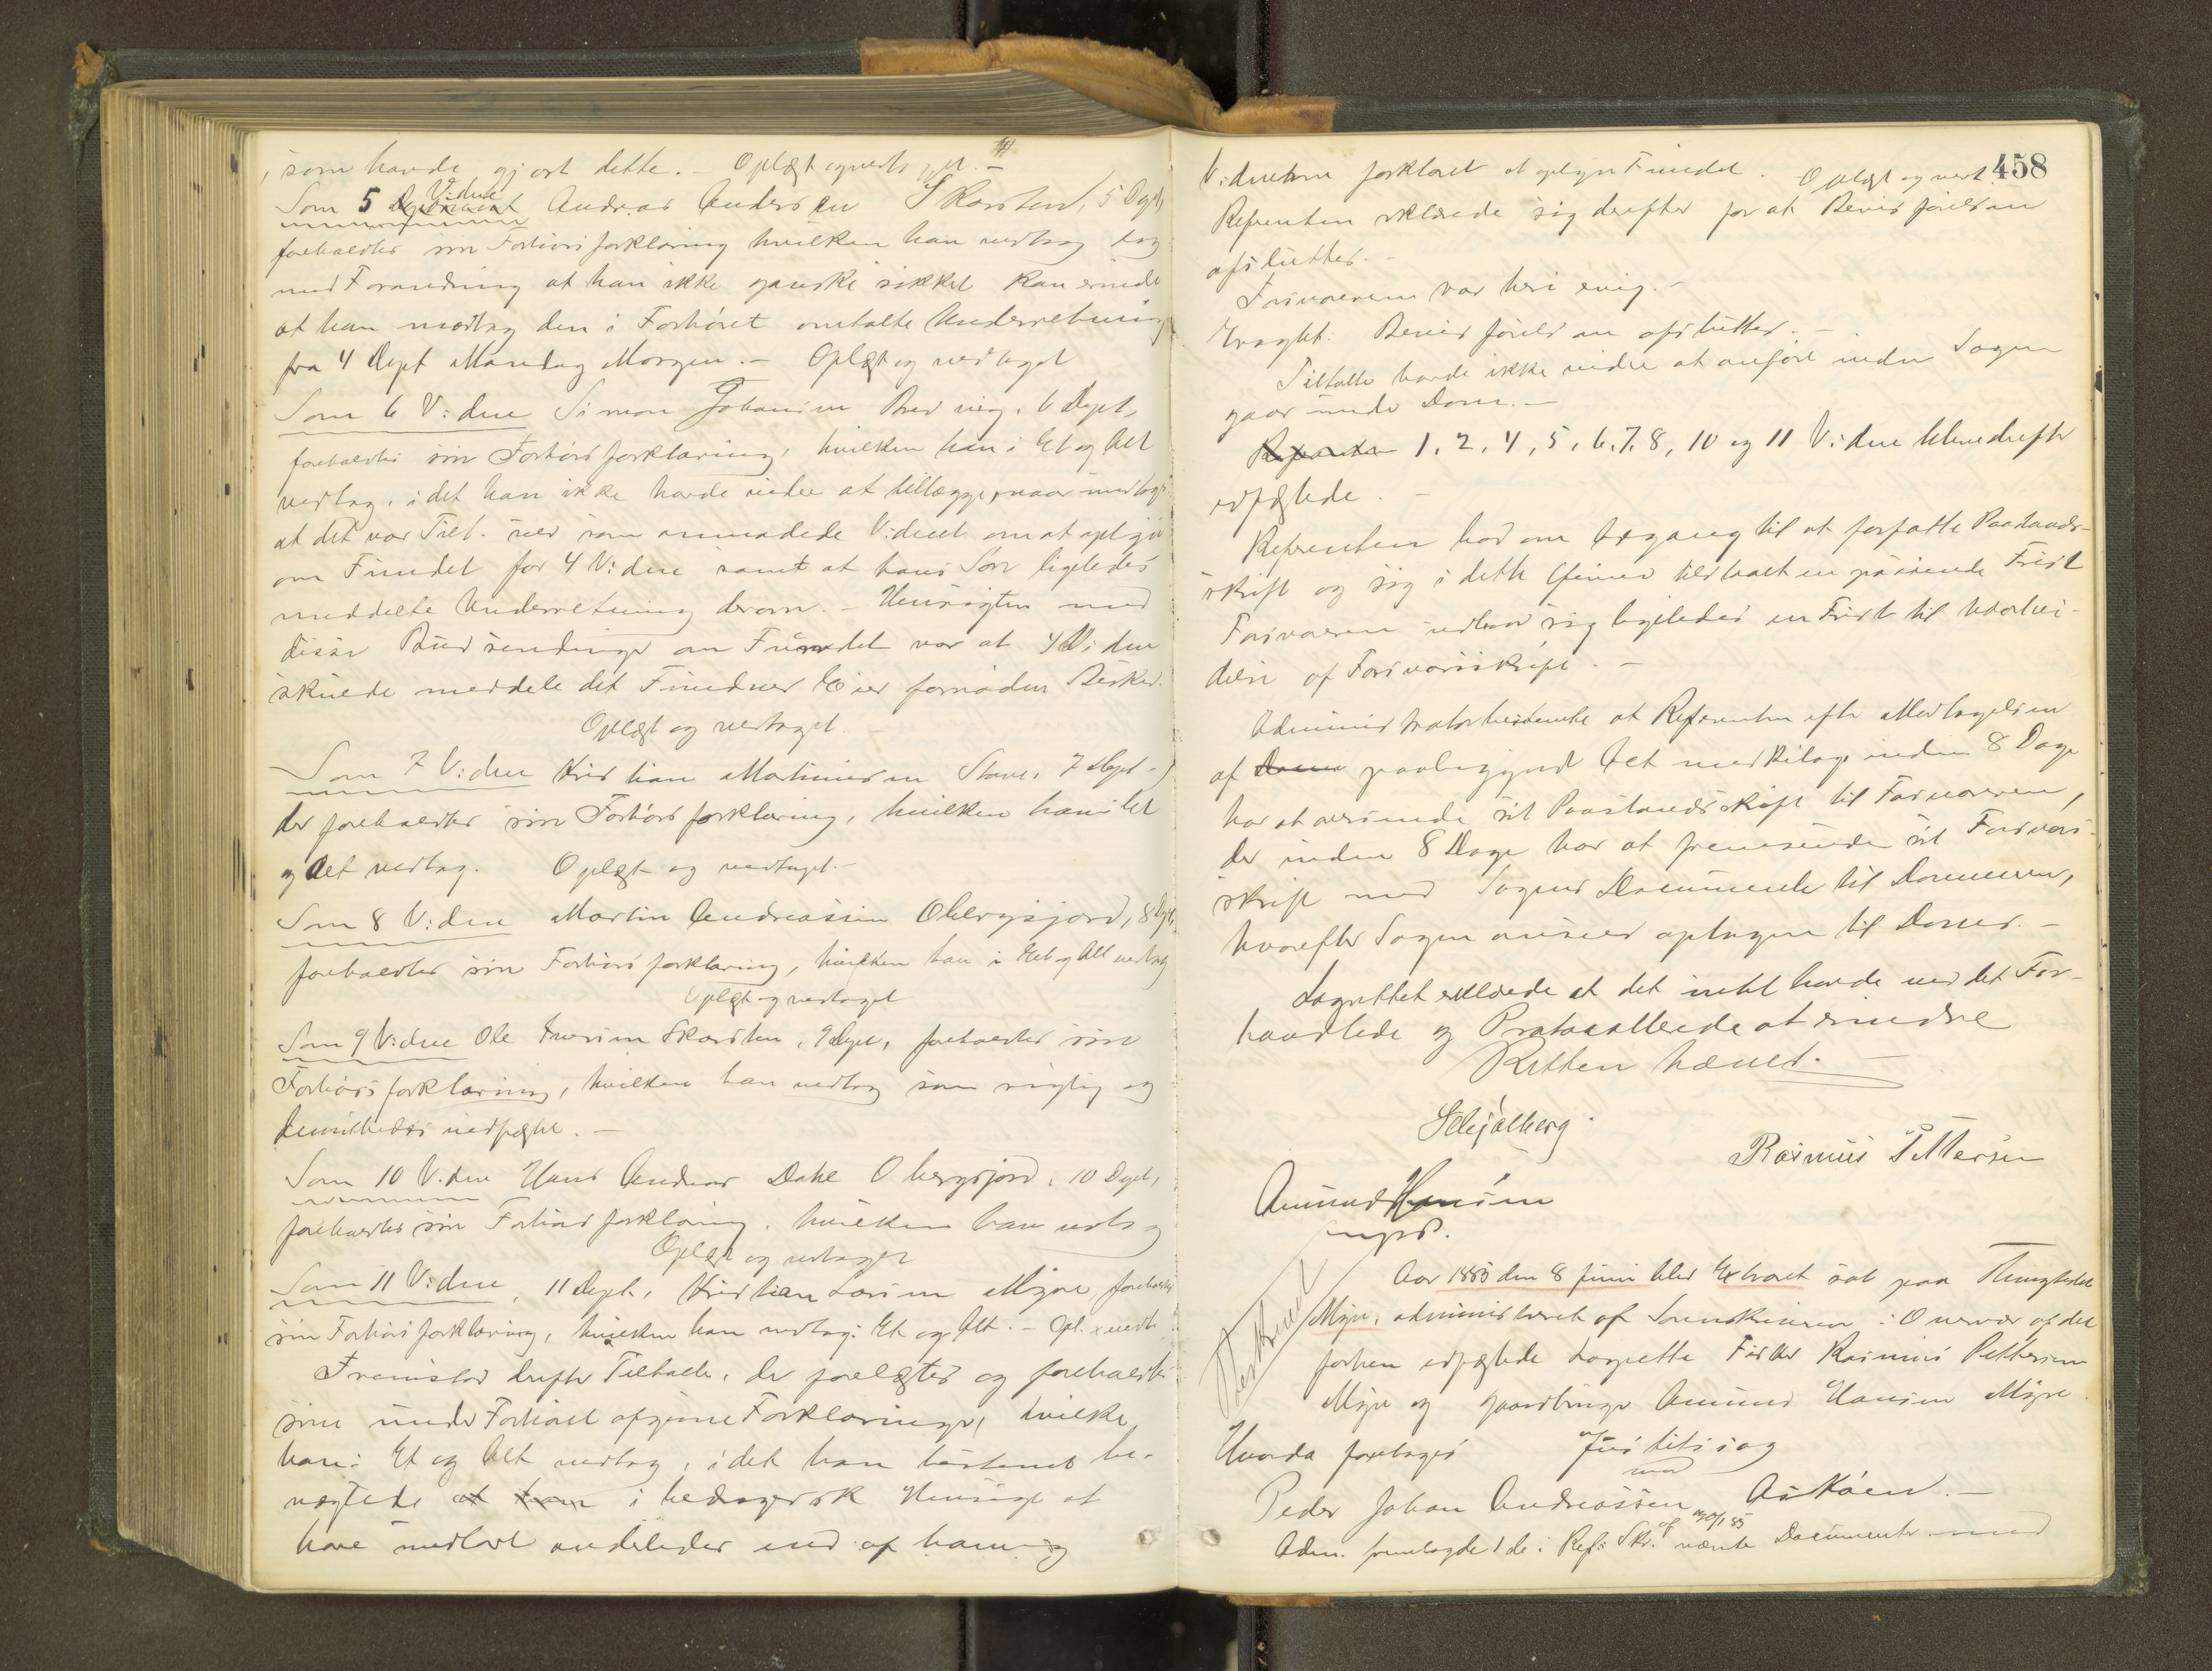 , som havde gjort dette. – Oplæst og vedtaget. –
Som 5 Vidne Andreas Andersen Skarsten, 5 Dept,
foreholdtes sin Forhørsforklaring hvilken han vedtog dog
med Forandring at han ikke ganske sikkert kan erindre
at han modtog den i Forhøret omtalte Underretning
fra 4 Dept Mandag Morgen. – Oplæst og vedtaget
Som 6 Vidne Simon Johansen Bredvig, 6 Dept,
foreholdtes sin Forhørsforklaring, hvilken han i Et og Alt
vedtog, idet han ikke havde videre at tillægge, naar undtages
at det var Tilt. selv som anmodede Vidnet om at opl gjv
om Fundet for 4 Vidne samt at hans Søn ligeledes
meddelte Underretning derom. – Hensigten med
disse Budsendinger om Fundet var at 4 Vidne
skulde meddele det Fundnes Eier fornøden Besked.
Oplæst og vedtaget. –
Som 7 Vidne Kristian Martinussen Stave, 7 Dept –
der foreholdtes sin Forhørsforklaring, hvilken han i Et
og Alt vedtog. Oplæst og vedtaget. –
Som 8 Vidne Martin Andreassen Olbergsjord, 8 Dept,
foreholdtes sin Forhørsforklaring, hvilken han i Et og Alt vedtog
Oplæst og vedtaget
Som 9 Vidne Ole Iversen Skarsten, 9 Dept, foreholdtes sin
Forhørsforklaring, hvilken han vedtog som rigtig og
nedfæstet. –
Som 10 Vidne Hans Andreas Dake Olbergsjord, 10 Dept,
foreholdtes sin Forhørsforklaring, hvilken han vedtog
Oplæst og vedtaget
Som 11 Vidne, 11 Dept, Kristian Larsen Myre, foreholdtes
sin Forhørsforklaring, hvilken han vedtog i Et og Alt. – Opl. & vedt.
Fremstod derefter Tiltalte, der forelæstes og foreholdtes
sine under Forhøret afgivne Forklaringer, hvilke
han i Et og Alt vedtog, idet han bestemt be-
nægtede at han i bedragersk Hensigt at
have undladt anderledes end af ham og
458
Vidnerne forklaret at oplyse Fundet. Oplæst og vedt.
Referenten erklærede sig derefter for at Bevisførelsen
afsluttes. –
Forsvareren var heri enig. –
Eragtet: Bevisførelsen afsluttes. –
Tiltalte havde ikke videre at anføre inden Sagen
gaar under Dom. –
Referenten 1, 2, 4, 5, 6, 7, 8, 10 og 11 Vidne blev derefter
edfæstede. –
Referenten bad om Adgang til at forfatte Paastands-
skrift og sig i dette Øiemed tilstaaet en passende Frist
Forsvareren udbad sig ligeledes en Frist til Udarbei-
delse af Forsvarsskrift. –
Administrator bestemte at Referenten efter Modtagelsen
af paabegyndt Act med Bilag inden 8 Dage
har at oversende sit Paastandsskrift til Forsvareren,
der inden 8 Dage har at fremsende sit Forsvars-
skrift med Sagens Documenter til Dommeren,
hvorefter Sagen ansees optagen til Doms. –
Lagrettet erklærede at det intet havde ved det For-
handlede og Protocollerede at erindre
Retten hævet. –
Rasmus Pettersen
Amund Hansen
m p P.
Aar 1885 den 8 Juni blev Extraret sat paa Thingstedet
Myre, administreret af Sorenskriveren i Overvær af det
forhen edfæstede Lagrette Fisker Rasmus Pettersen
Myre og Gaardbruger Amund Hansen Myre.
Hvorda foretages Justitssag
mod
Peder Johan Andreassen Askøen. –
Adm. fremlagde 1 de i Ref: Skr. af nævnte Documenter med